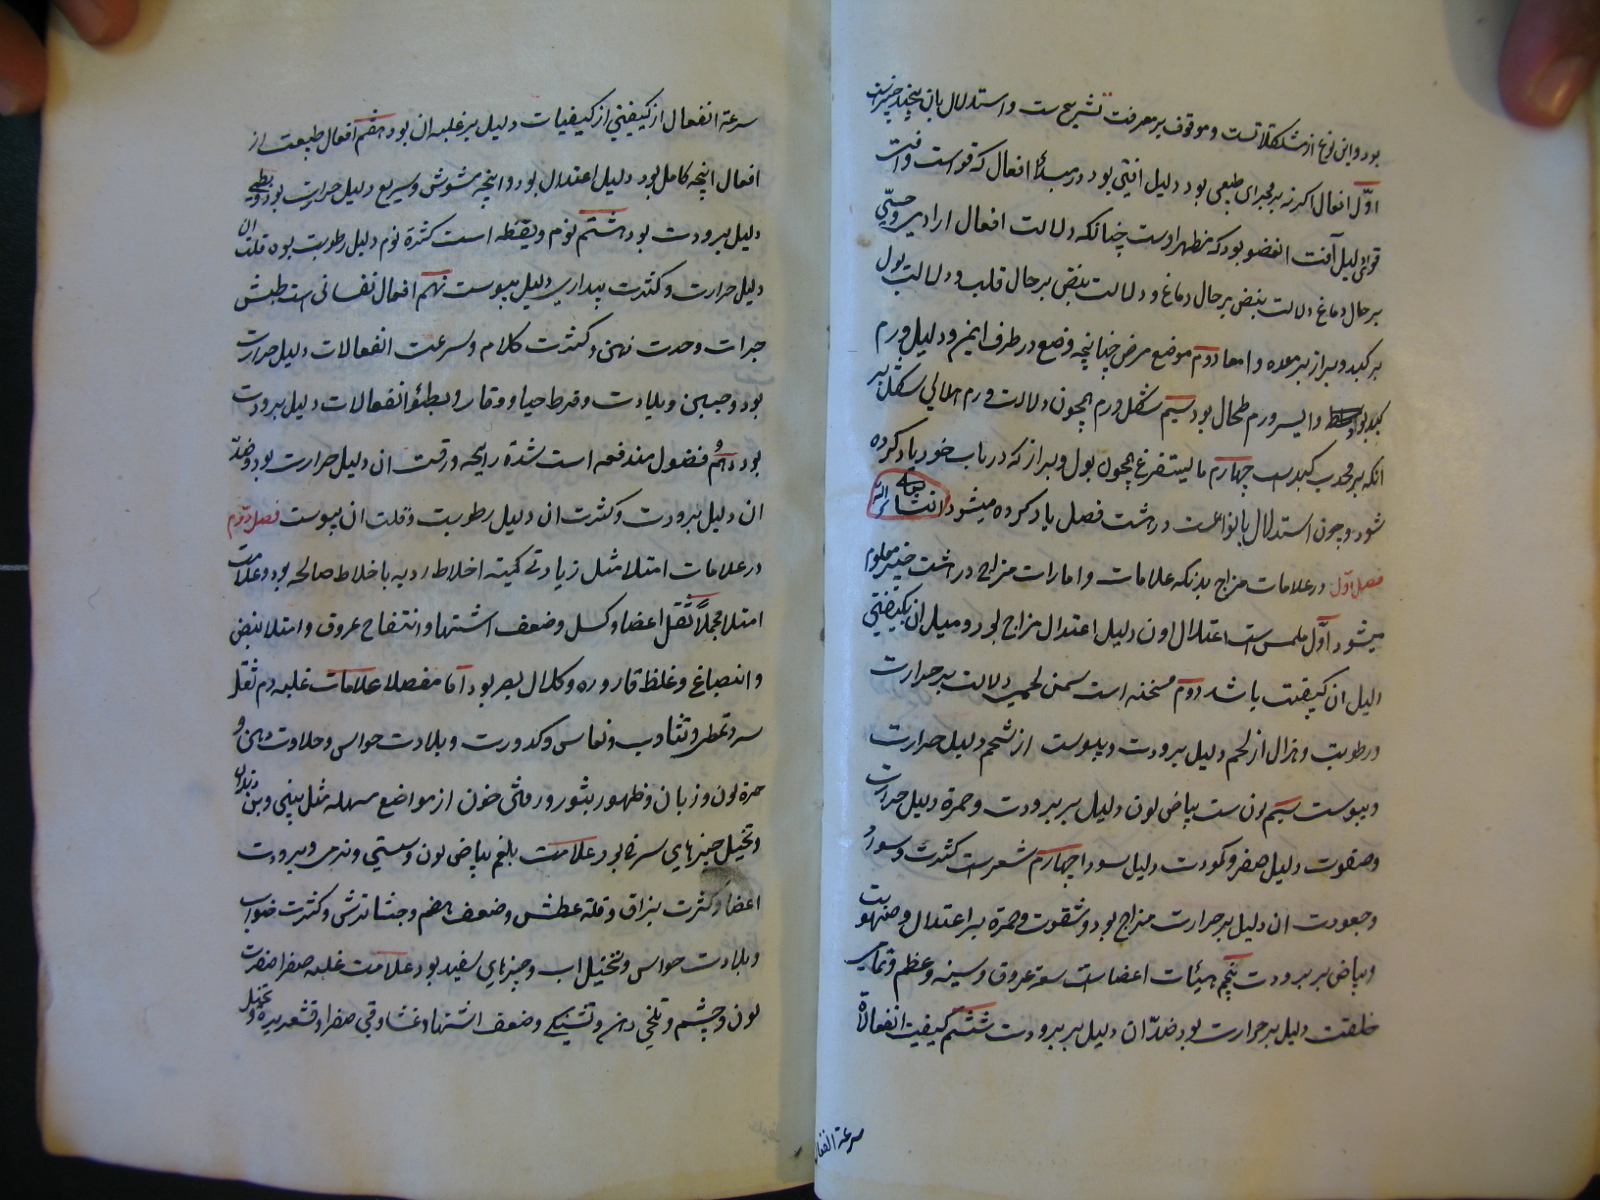 بود و این نوع از مشکلاتست و موقوف بر معرفت تشریح ست و استدلال بان به پنج چیز است
اوّل افعال اکر نه بر مجرای طبعی بود دلیل افتی بود در مبدأ افعال که قو است و افت
قوای دلیل آفت انعضو بود که مظهر اوست چنانکه دلالت افعال ارادیه و حسّی
بر حال دماغ دلالت بنض بر حال دماغ و دلالت بنض بر حال قلب و دلالت بول
بر کبد و براز بر معده و امعا دوم موضع مرض چنانچه وضع در طرف ایمن و دلیل ورم
کبد بود و ایسر ورم طحال بود سیم شکل ورم همچون دلالت ورم هلالی شکل بر
انکه بر محدب کبد ست چهارم ما یستفرغ همچون بول و براز که در باب خود یاد کرده
شود و چون استدلال بانواعست در هشت فصل یاد کرده میشود انشاء الله تعالی
فصل اوّل در علامات مزاج بدنکه علامات و امارات مزاج در هشت چیز معلوم
میشود اوّل ملمس ست اعتدال اون دلیل اعتدال مزاج بود و میل ان بکیفیتی
دلیل ان کیفیت باشد دوم سخنه است سمن لحمی دلالت بر حرارت
و رطوبت و هزال از لحم دلیل برودت و یبوست از شحم دلیل حرارت
و یبوست سیم لون ست بیاض لون دلیل بر برودت و حمرة دلیل حرارت
و صفوت دلیل صفرا و کمودت دلیل سودا چهارم شعر ست کثرت و سواد
و جعودت ان دلیل بر حرارت مزاج بود و شقوت و حمرة بر اعتدال و صهوبت
و بیاض بر برودت پنجم هیئات اعضاست سعة عروق و سینه و عظم و تمامی
خلقت دلیل بر حرارت بود ضدّ ان دلیل بر برودت ششم کیفیت انفعالاة
سرعة انفعال
سرعة انفعال از کیفیتی از کیفیات دلیل بر غلبه ان بود هفتم افعال طبیعت از
افعال انچه کامل بود دلیل اعتدال بود و انچه مشوش و سریع دلیل حرارت بود و بطیء
دلیل برودت بود هشتم نوم و یقظه است کثرة نوم دلیل رطوبت بود قلت ان
دلیل حرارت و کثرت بیداری دلیل یبوست نهم افعال نفسانی است طیش
جرات و حدت ذهن و کثرت کلام و سرعت انفعالات دلیل حرارت
بود و جبن و بلادت و فرط حیا و وقار و بطئو انفعالات دلیل برودت
بود دهم فضول مندفعه است شدة رایحه و رقت ان دلیل حرارت بود و ضدّ
ان دلیل برودت و کثرت ان دلیل رطوبت و قلت ان یبوست فصل دوّم
در علامات امتلا مثل زیادتی کمیته اخلاط ردیه با خلاط صالحه بود و علامت
امتلا مجملاً ثقل اعضا و کسل و ضعف اشتها و انتفاخ عروق و امتلا نبض
و انصباغ و غلظ قاروره و کلال بصر بود اما مفصلا علامات غلبه دم ثقل
سر و تمطی و تثاوب و نعاس و کدورت و بلادت حواس و حلاوت دهن و
حمرة لون و زبان و ظهور بثور و رفتن خون از مواضع سهله مثل بینی و بن دندان
و تخیل چیزهای سرخ بود علامت بلغم بیاض لون و سستی و نرمی و برودت
اعضا و کثرت بزاق و قلة عطش و ضعف هضم و جشا ترش و کثرت خواب
و بلادت حواس و تخیل اب و چیزهای سفید بود علامت غلبه صفرا صفرت
لون و چشم و تلخی دهن و تشنکی و ضعف اشتها و غشا و قی صفرا و قشعریره و تخیل